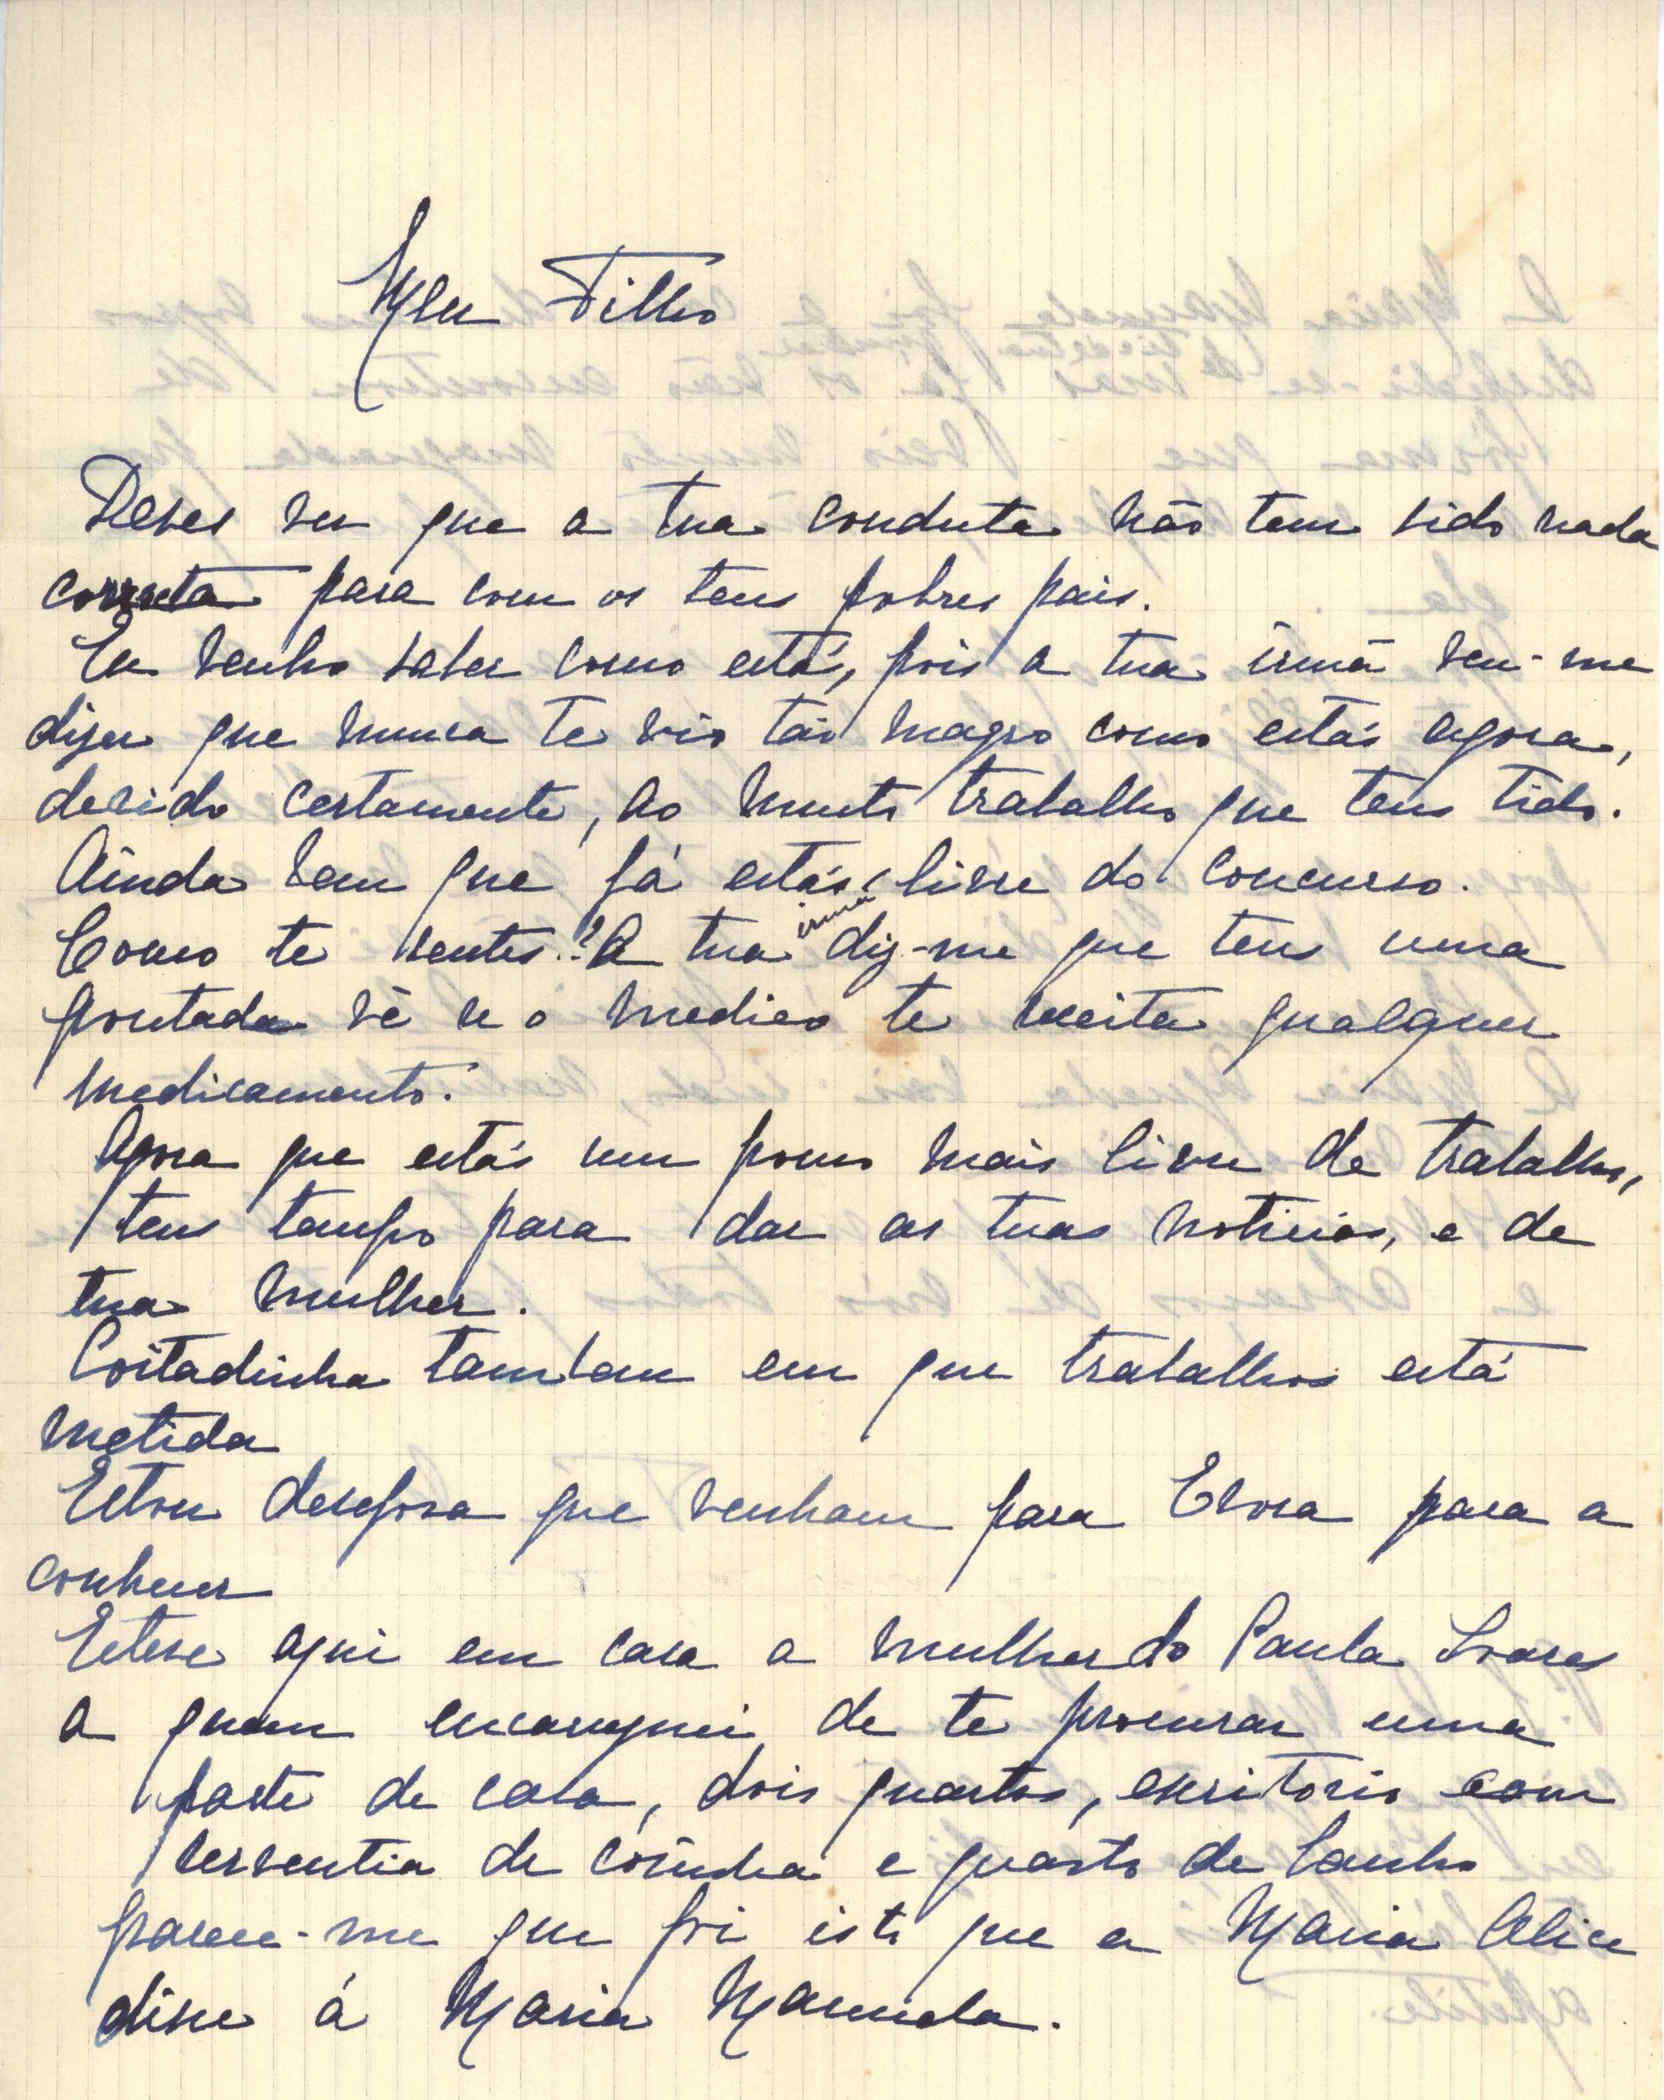 Meu Filho
Deves ver que a tua conduta não tem sido nada
correta para com os teus pobres pais.
Eu venho saber como estás, pois a tua irmã veu-me
dizer que nunca te viu tão magro como estás agora,
devido certamente, ao muito trabalho que tens tido.
Ainda bem que já estás livre do concurso.
Como te sentes? A tua irmã diz-me que tens uma
pontada vê se o medico te receita qualquer
medicamento.
Agora que estás um pouco mais livre de trabalhos,
tens tempo para dar as tuas noticias, e de
tua mulher.
Coitadinha tambem em que trabalhos está
metida
Estou desejosa que venham para Evora para a
conhecer
Esteve aqui em casa a mulher do Paula Soares
a quem encarreguei de te procurar uma
parte de casa, dois quartos, escritorio com
serventia de cosinha e quarto de banho
parece-me que foi isto que a Maria Alice
disse á Maria Manuela.